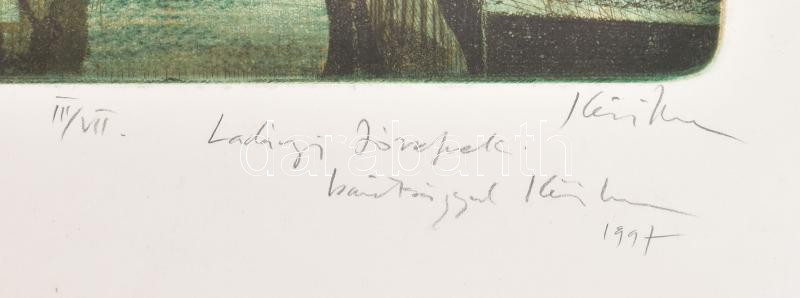 III/VII.
Ladányi Józsefnek. Kéri Imre
barátsággal Kéri Imre
1997
darabanth